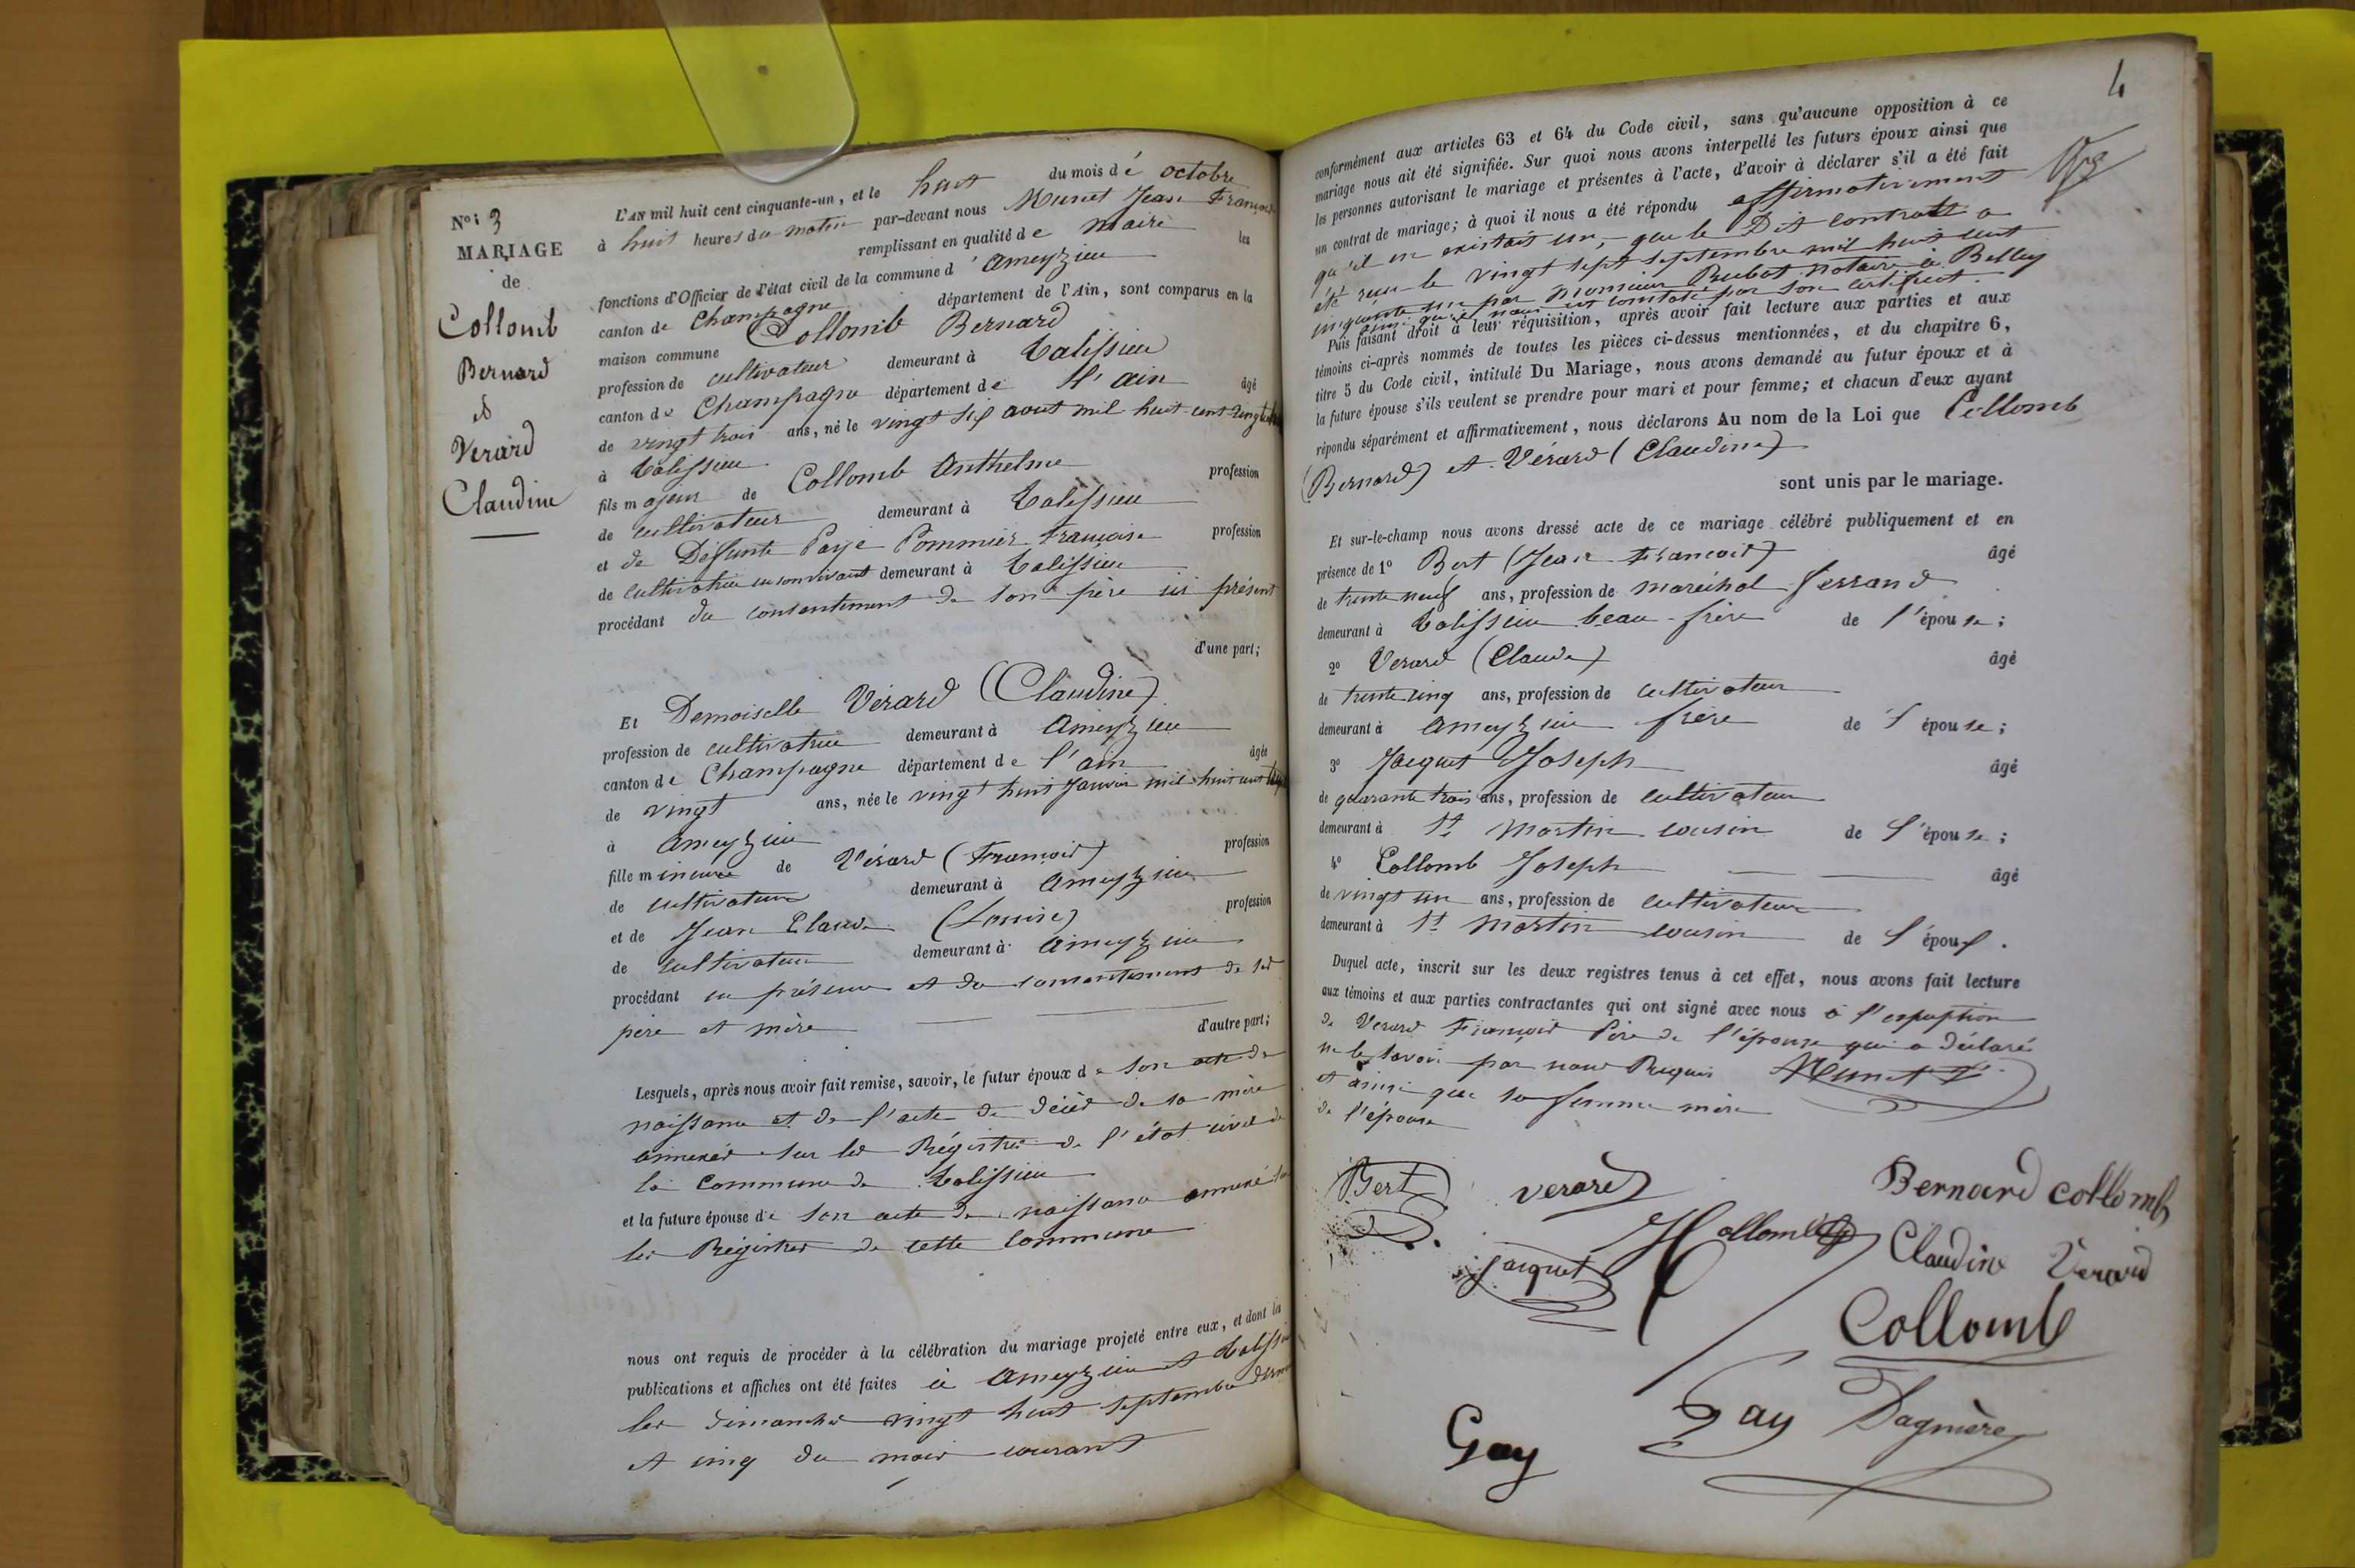 N° 3
MARIAGE
de
Collomb
Bernard
et
Verard
Claudine
L'AN mil huit cent cinquante-un, et le huit du mois dé octobre
à huit heures du matin par-devant nous Munet Jean François
remplissant en qualité de maire les
fonctions d'Officier de l'état civil de la commune d' Ameyzieu
canton de Champagne département de l'Ain, sont comparus en la
maison commune Collomb Bernard
profession de cultivateur demeurant à Talissieu
canton de Champagne département de l'ain âgé
de vingt trois ans, né le vingt six aout mil huit cent vingt
à Talissieu
fils majeur de Collomb Anthelme profession
de cultivateur demeurant à Talissieu
et de Défunte Paye Pommier Française profession
de cultivatrice en son vivant demeurant à Talissieu
procédant du consentement de son père ici présent
d'une part;
Et Demoiselle Vérard (Claudine)
profession de cultivatrice demeurant à Ameyzieu
canton de Champagne département de l'ain âgée
de vingt ans, née le vingt huit Janvier mil huit cent
à Ameyzieu
fille mineure de Vérard (François) profession
de cultivateur demeurant à Ameyzieu
et de Jean Claude (Louise) profession
de cultivateur demeurant à Ameyzieu
procédant en présence et du consentement de ses
père et mère
d'autre part;
Lesquels, après nous avoir fait remise, savoir, le futur époux de son acte de
naissance et de l'acte de décès de sa mère
annexés sur les Régistres de l'état civil de
la Commune de Talissieu
et la future épouse de son acte de naissance annexé
les Régistres de cette Commune
nous ont requis de procéder à la célébration du mariage projeté entre eux, et dont les
publications et affiches ont été faites à Ameyzieu et Talissieu
les dimanches vingt huit septembre dernier
et cinq du mois courant
4
conformément aux articles 63 et 64 du Code civil, sans qu'aucune opposition à ce
mariage nous ait été signifiée. Sur quoi nous avons interpellé les futurs époux ainsi que
les personnes autorisant le mariage et présentes à l'acte, d'avoir à déclarer s'il a été fait
un contrat de mariage; à quoi il nous a été répondu affirmativement
qu'il en existait un, que le Dit contrat a
été reçu le vingt sept septembre mil huit cent
cinquante un par Monsieur Bubat notaire à Belley
ainsi qu'il nous est constaté par son certificat.
Puis faisant droit à leur réquisition, après avoir fait lecture aux parties et aux
témoins ci-après nommés de toutes les pièces ci-dessus mentionnées, et du chapitre 6,
titre 5 du Code civil, intitulé Du Mariage, nous avons demandé au futur époux et à
la future épouse s'ils veulent se prendre pour mari et pour femme; et chacun d'eux ayant
répondu séparément et affirmativement, nous déclarons Au nom de la Loi que Collomb
(Bernard) et Vérard (Claudine)
sont unis par le mariage.
Et sur-le-champ nous avons dressé acte de ce mariage célébré publiquement et en
présence de 1° Bert (Jean François) âgé
de trente neuf ans, profession de maréchal ferrand
demeurant à Talissieu beau-frère de l'épouse;
2° Verard (Claude) âgé
de trente cinq ans, profession de cultivateur
demeurant à Ameyzieu frère de l'épouse;
3° Jacquet Joseph âgé
de quarante trois ans, profession de cultivateur
demeurant à St Martin cousin de l'épouse;
4° Collomb Joseph âgé
de vingt un ans, profession de cultivateur
demeurant à St Martin cousin de l'époux.
Duquel acte, inscrit sur les deux registres tenus à cet effet, nous avons fait lecture
aux témoins et aux parties contractantes qui ont signé avec nous à l'exception
de Verard François Père de l'épouse qui a déclaré
ne le savoir par nous Requis Munet
et ainsi que sa femme mère
de l'épouse
Bert verard Bernard collomb
Jacquet Collomb Claudine Verard
Collomb
Gay Gay Dagnière